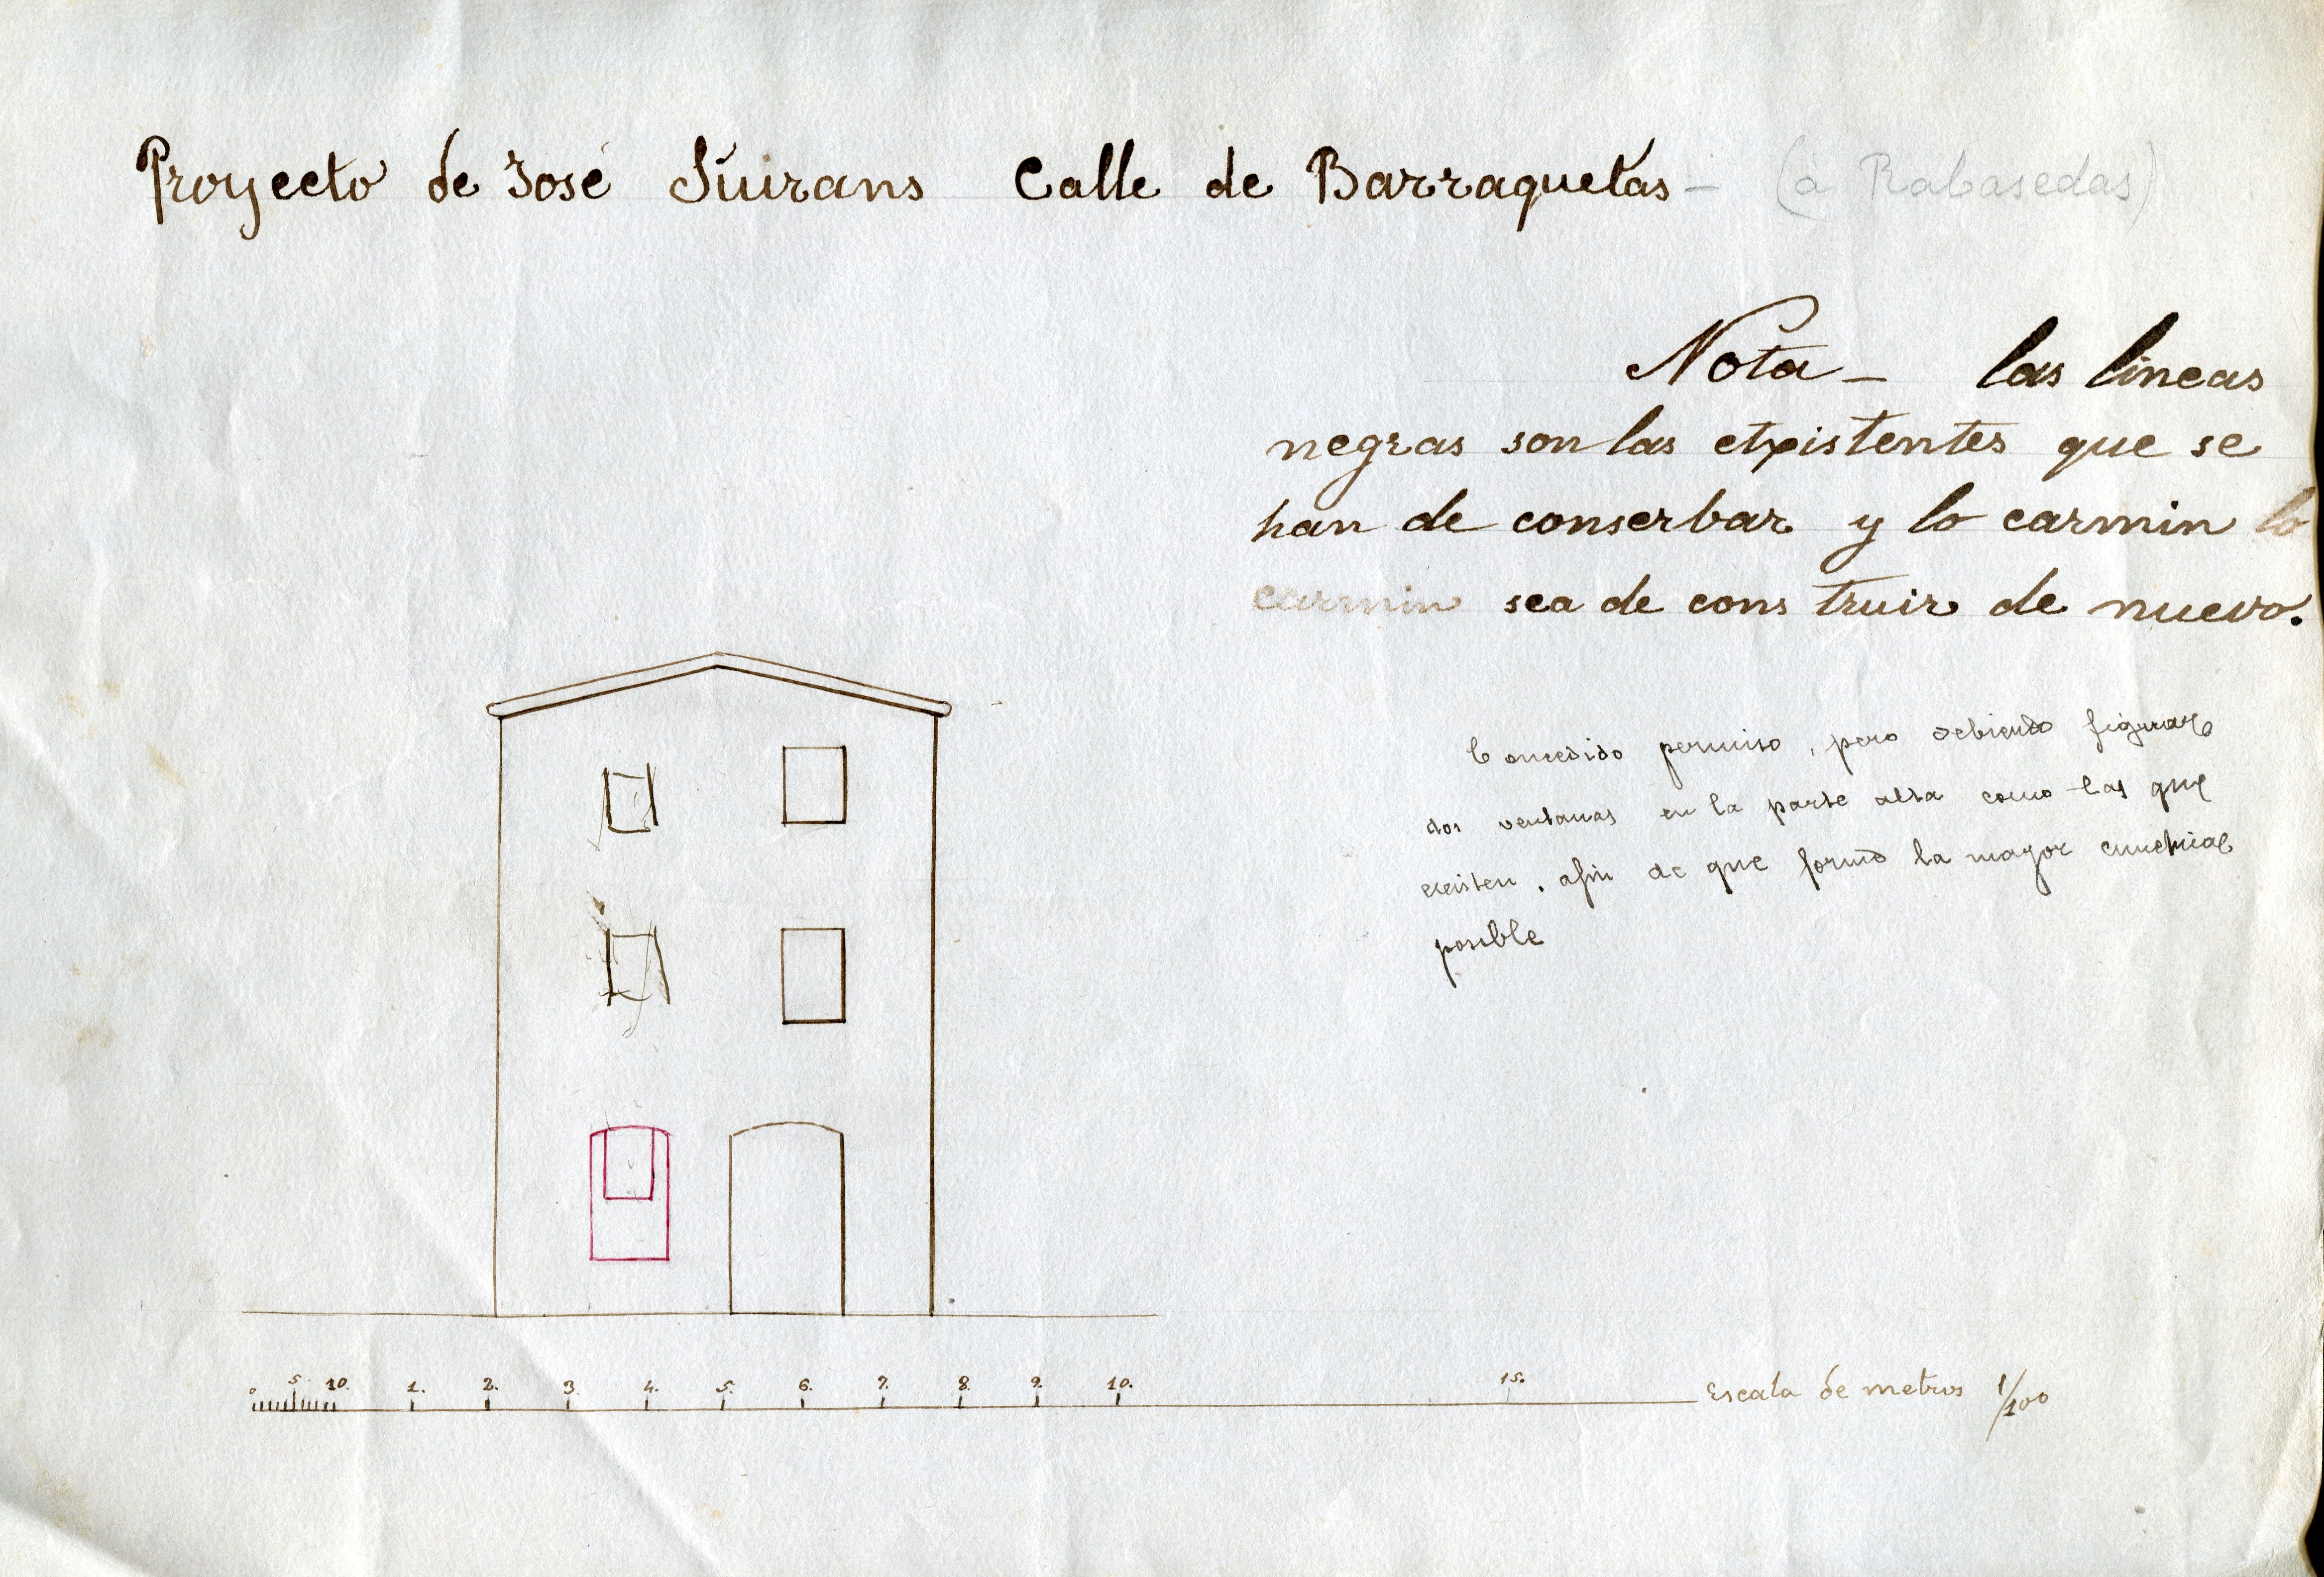 Proyecto de José Súirans Calle de Barraquetas - (à Rabasedas)
Nota - las lineas
negras son las etxistentes que se
han de conserbar y lo carmin lo
carmin sea de cons truir de nuevo.
Concedido permiso, pero debiendo figurar
dos ventanas en la parte alta como las que
existen, afin de que forme la mayor
posible
0 5. 10. 1. 2. 3. 4. 5. 6. 7. 8. 9. 10. 15. Escala de metros 1/100